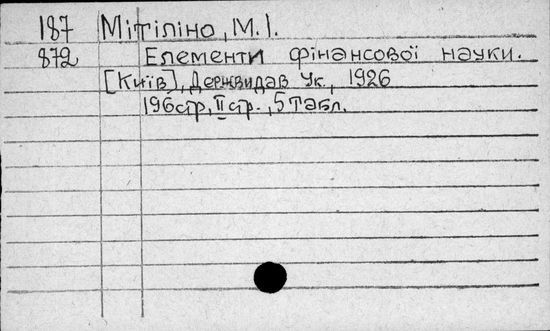 187 Мітіліно, М.І.
872 Елементи фінансової науки.
[Київ], Держвидав Ук., 1926
196стр, II стр., 5 табл.